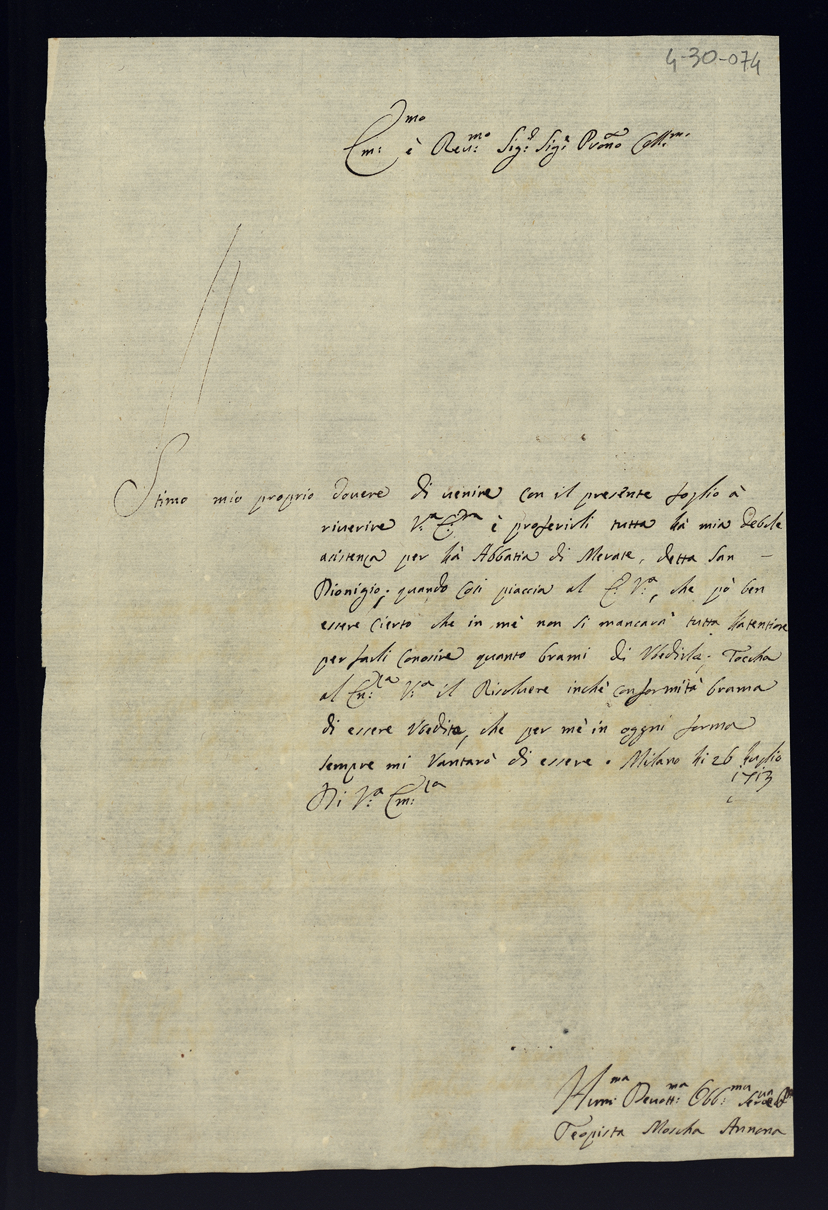 4-30-074
Em:mo è Reu:mo Sig:r Sig:r Prone Coll:mo
Stimo mio proprio douere di uenire con il presente foglio à
riuerire V:a E:ma è proferirli tutta la mia debole
asistenza per la Abbatia di Merate, detta San
Dionigio; quando così piaccia al E: V:a, che pò ben
essere Cierto che in mè non si mancarà tutta latentione
per farli Conosire quanto brami di Vbedirla. Toccha
al Em:za V:a il Risoluere inchè conformità brama
di essere Vbedita, che per mè in oggni forma
sempre mi Vantarò di essere. Milano li 26 Luglio
1713
Di V:a Em:za
Humi:ma Deuott:ma Obb:ma
Teopista Moscha Annona